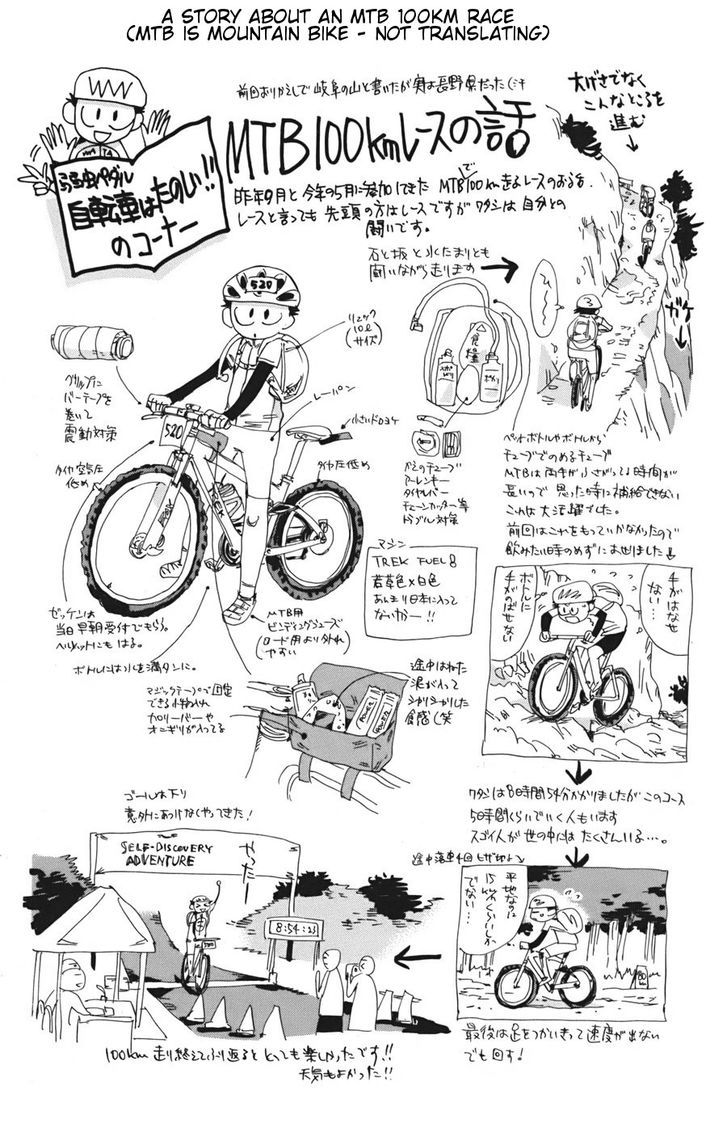 A STORY ABOUT AN MTB 100KM RACE
(MTB IS MOUNTAIN BIKE - NOT TRANSLATING)
前回おりかえしで岐阜の山と書いたが実は長野県だった
MTB100kmレースの話
弱虫ペダル
自転車はたのしい!!
のコーナー
昨年9月と今年の5月に参加してきた MTBで100km走るレースのおはなし。
レースと言っても 先頭の方はレースですがワタシは自分との
闘いです。
大げさでなく
こんなところを
進む
石と坂と水たまりとも
闘いながら走ります
ガケ
520
リュック
(10ℓ
サイズ)
食糧
グリップに
バーテープを
巻いて
震動対策
レーパン
小さいドロヨケ
タイヤ空気圧
低め
520
タイヤ圧低め
かえのチューブ
アーレンキー
タイヤレバー
チェーンカッター等
トラブル対策
ペットボトルやボトルから
チューブでのめるチューブ
MTBは両手がふさがってる時間が
長いので 思った時に補給できない
これは大活躍でした。
前回はこれをもっていかなかったので
飲みたい時のめずに
マシン
TREK FUEL8
若草色×白色
あんまり日本に入って
ないかもー!!
ゼッケンは
当日早朝受付でもらう。
ヘルメットにもはる。
MTB用
ビンディングシューズ
(ロード用より外れ
やすい
ボトルには水を満タンに。
手がはなせ
ない…
ボトルに
手がのばせない
マジックテープで固定
できる小物入れ
カロリーバーや
オニギリが入ってる
途中はねた
泥が入って
ジャリジャリした
食感(笑
ワタシは8時間54分かかりましたがこのコース
5時間くらいでいく人もいます
スゴイ人が世の中にはたくさんいる…。
ゴールは下り
意外にあっけなくやってきた!
SELF-DISCOVERY
ADVENTURE
やったー
8:54:23
途中落車4回
平地なのに
15km/hくらいしか
でない…
最後は足をつかいきって速度が出ない
でも回す!
100km走り終えてふり返ると とっても楽しかったです!!
天気もよかった!!